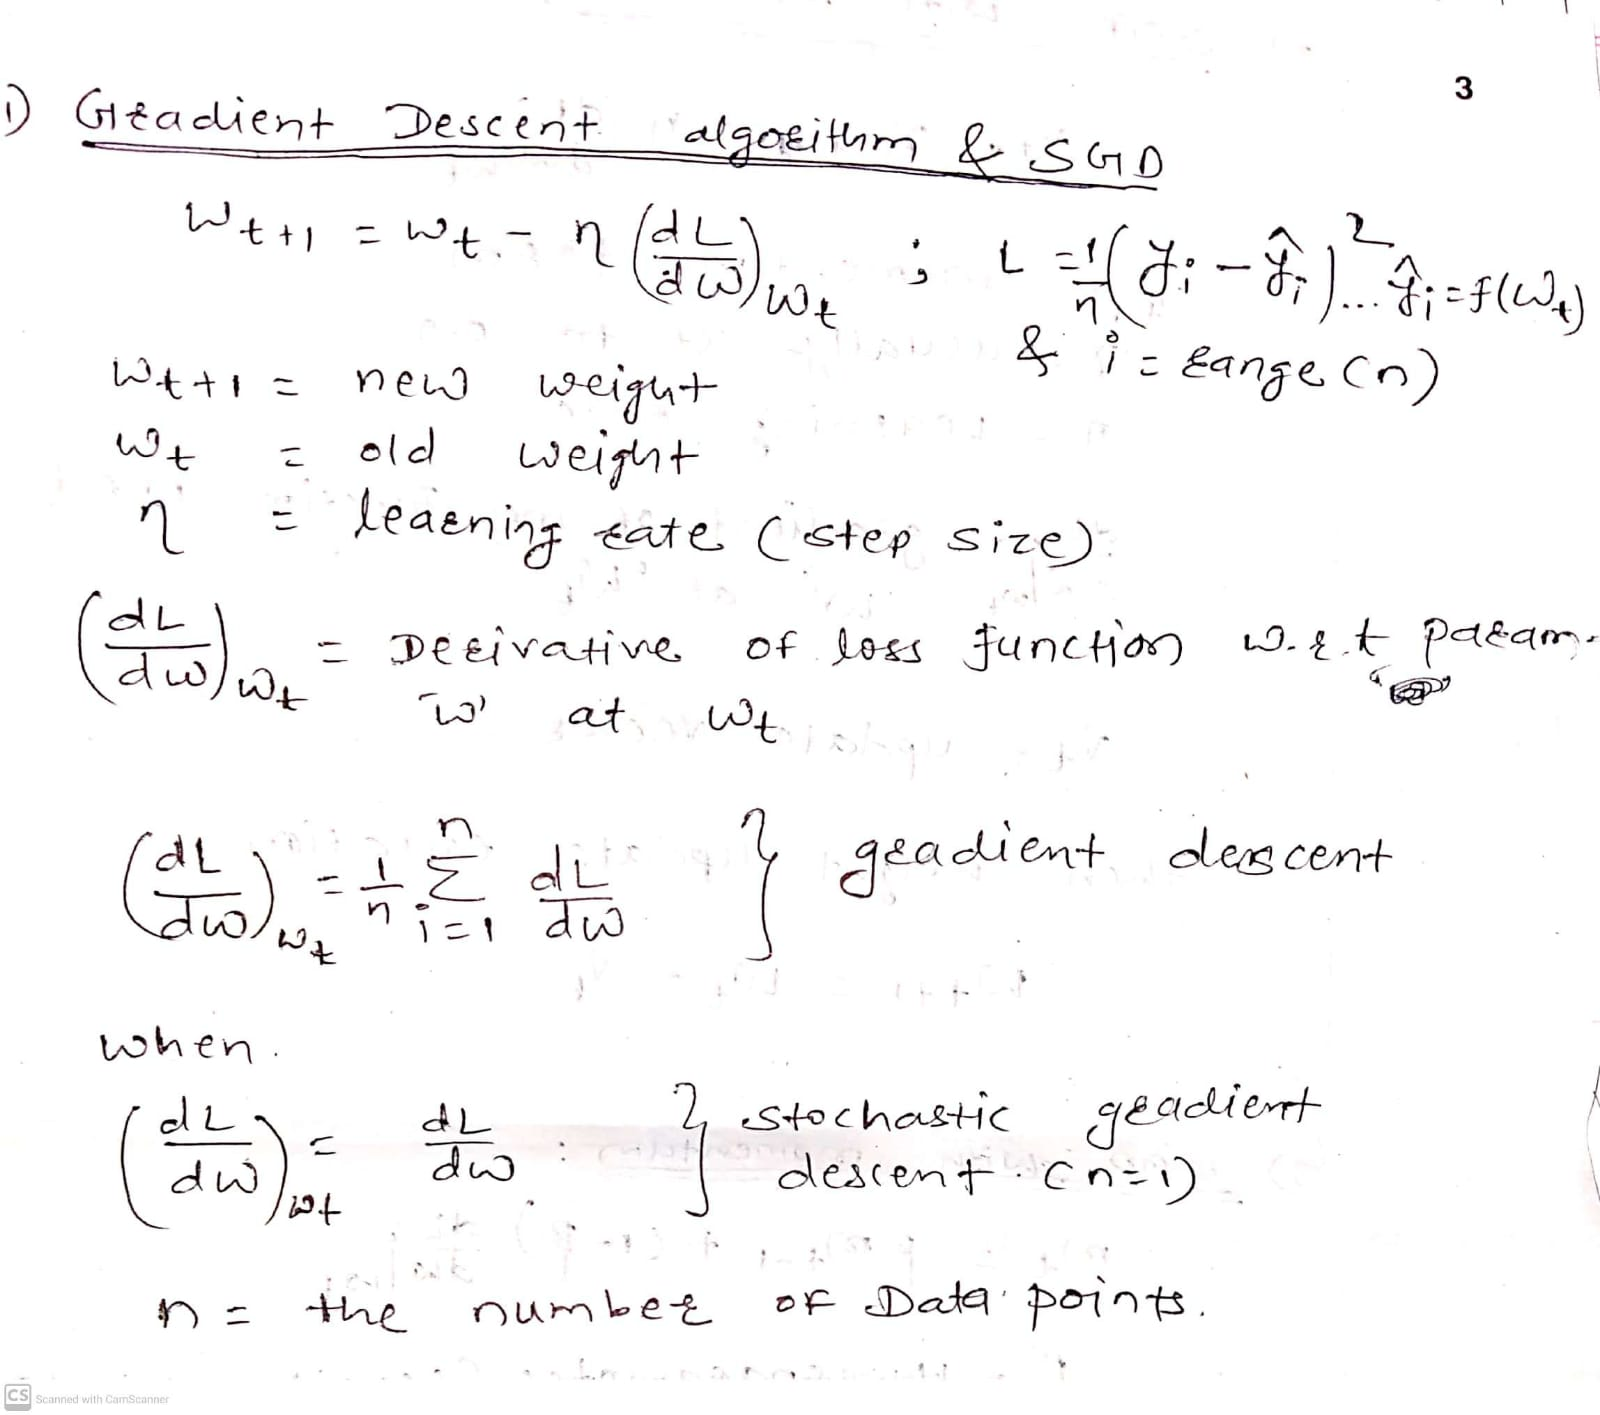 3
1) Gradient Descent algorithm & SGD
Wt+1 = Wt - η (dL/dw)Wt ; L = 1/n (yi - ŷi)² ... ŷi = f(Wt)
& i = range (n)
Wt+1 = new weight
Wt = old weight
η = learning rate (step size)
(dL/dw)Wt = Derivative of loss function w.r.t param.
'w' at Wt
(dL/dw)Wt = 1/n Σ i=1 n dL/dw } gradient descent
when.
(dL/dw)Wt = dL/dw } stochastic gradient
descent (n=1)
n = the number of Data points.
CS Scanned with CamScanner